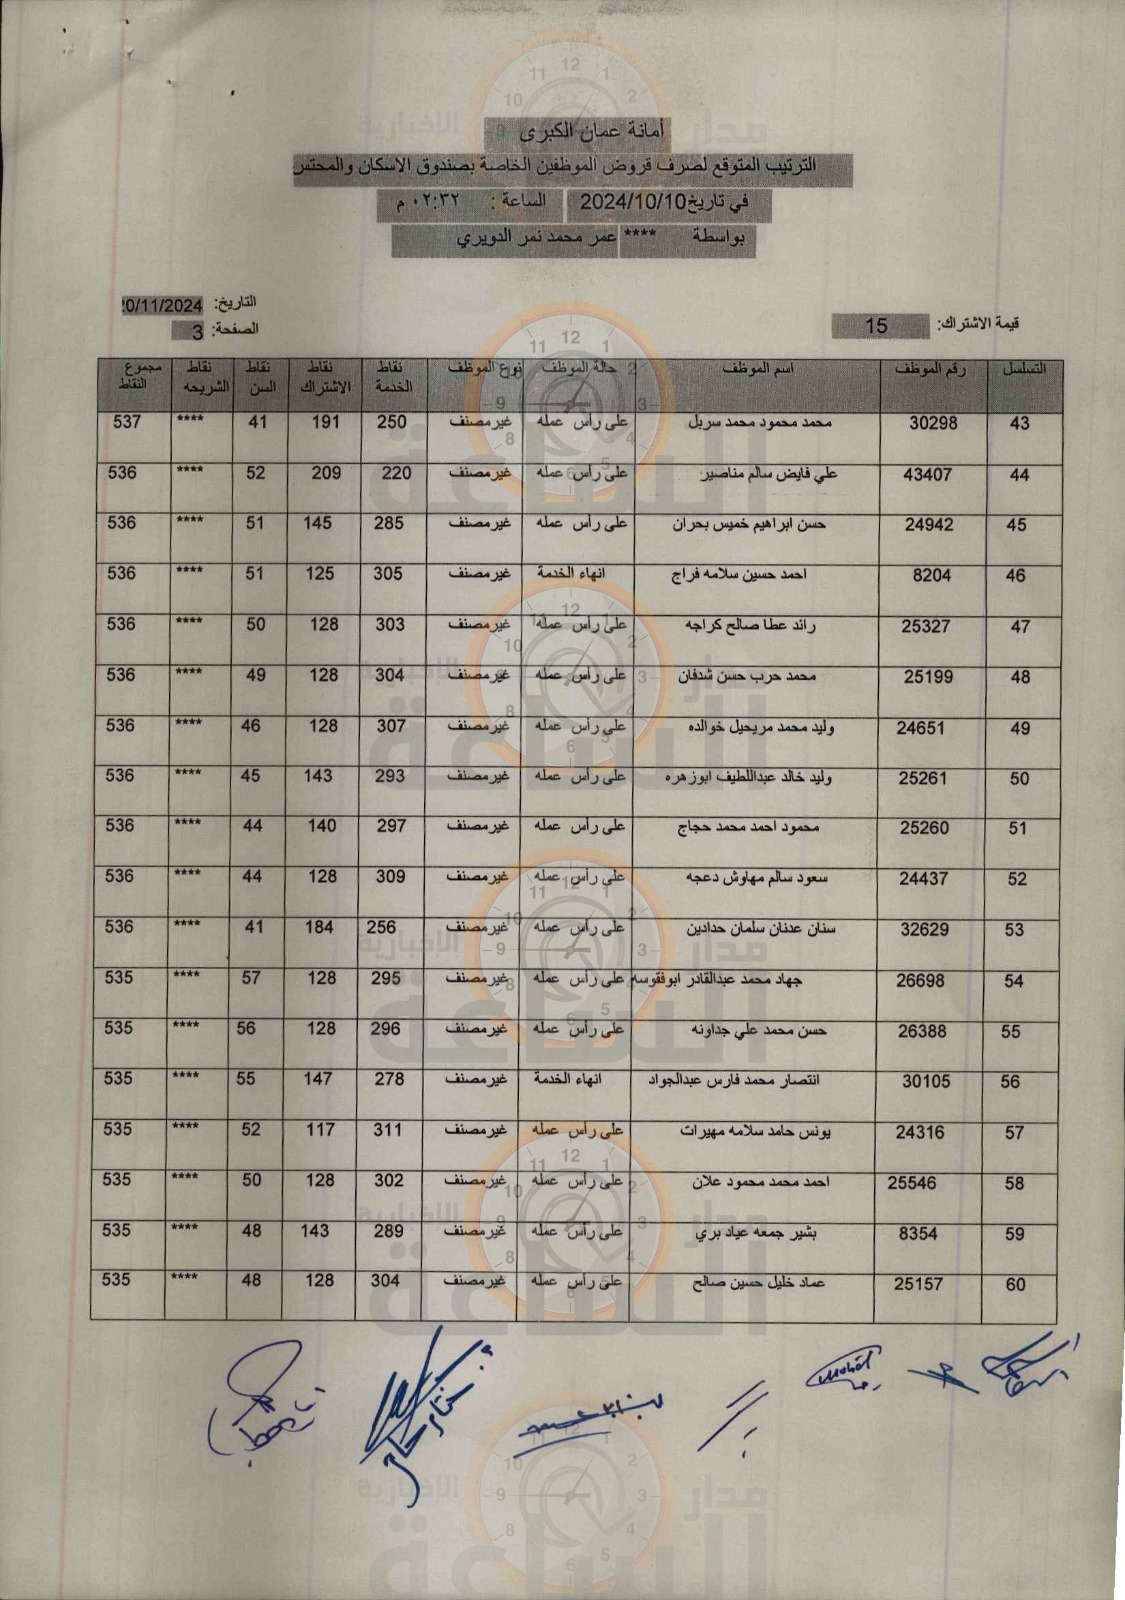 أمانة عمان الكبرى
الترتيب المتوقع لصرف قروض الموظفين الخاصة بصندوق الاسكان والمحتس
في تاريخ 2024/10/10 الساعة : ٠٢:٣٢ م
بواسطة **** عمر محمد نمر الدويري
التاريخ: 0/11/2024
قيمة الاشتراك: 15 الصفحة: 3
التسلسل رقم الموظف اسم الموظف حالة الموظف نوع الموظف نقاط الخدمة نقاط الاشتراك نقاط السن نقاط الشريحه مجموع النقاط
43 30298 محمد محمود محمد سربل على رأس عمله غير مصنف 250 191 41 **** 537
44 43407 علي فايض سالم مناصير على رأس عمله غير مصنف 220 209 52 **** 536
45 24942 حسن ابراهيم خميس بحران على رأس عمله غير مصنف 285 145 51 **** 536
46 8204 احمد حسين سلامه فراج انهاء الخدمة غير مصنف 305 125 51 **** 536
47 25327 رائد عطا صالح كراجه على رأس عمله غير مصنف 303 128 50 **** 536
48 25199 محمد حرب حسن شدفان على رأس عمله غير مصنف 304 128 49 **** 536
49 24651 وليد محمد مريحيل خوالده على رأس عمله غير مصنف 307 128 46 **** 536
50 25261 وليد خالد عبداللطيف ابوزهره على رأس عمله غير مصنف 293 143 45 **** 536
51 25260 محمود احمد محمد حجاج على رأس عمله غير مصنف 297 140 44 **** 536
52 24437 سعود سالم مهاوش دعجه على رأس عمله غير مصنف 309 128 44 **** 536
53 32629 سنان عدنان سلمان حدادين على رأس عمله غير مصنف 256 184 41 **** 536
54 26698 جهاد محمد عبدالقادر ابوفقوسه على رأس عمله غير مصنف 295 128 57 **** 535
55 26388 حسن محمد علي جداونه على رأس عمله غير مصنف 296 128 56 **** 535
56 30105 انتصار محمد فارس عبدالجواد انهاء الخدمة غير مصنف 278 147 55 **** 535
57 24316 يونس حامد سلامه مهيرات على رأس عمله غير مصنف 311 117 52 **** 535
58 25546 احمد محمد محمود علان على رأس عمله غير مصنف 302 128 50 **** 535
59 8354 بشير جمعه عياد بري على رأس عمله غير مصنف 289 143 48 **** 535
60 25157 عماد خليل حسين صالح على رأس عمله غير مصنف 304 128 48 **** 535
مدار الساعة الإخبارية